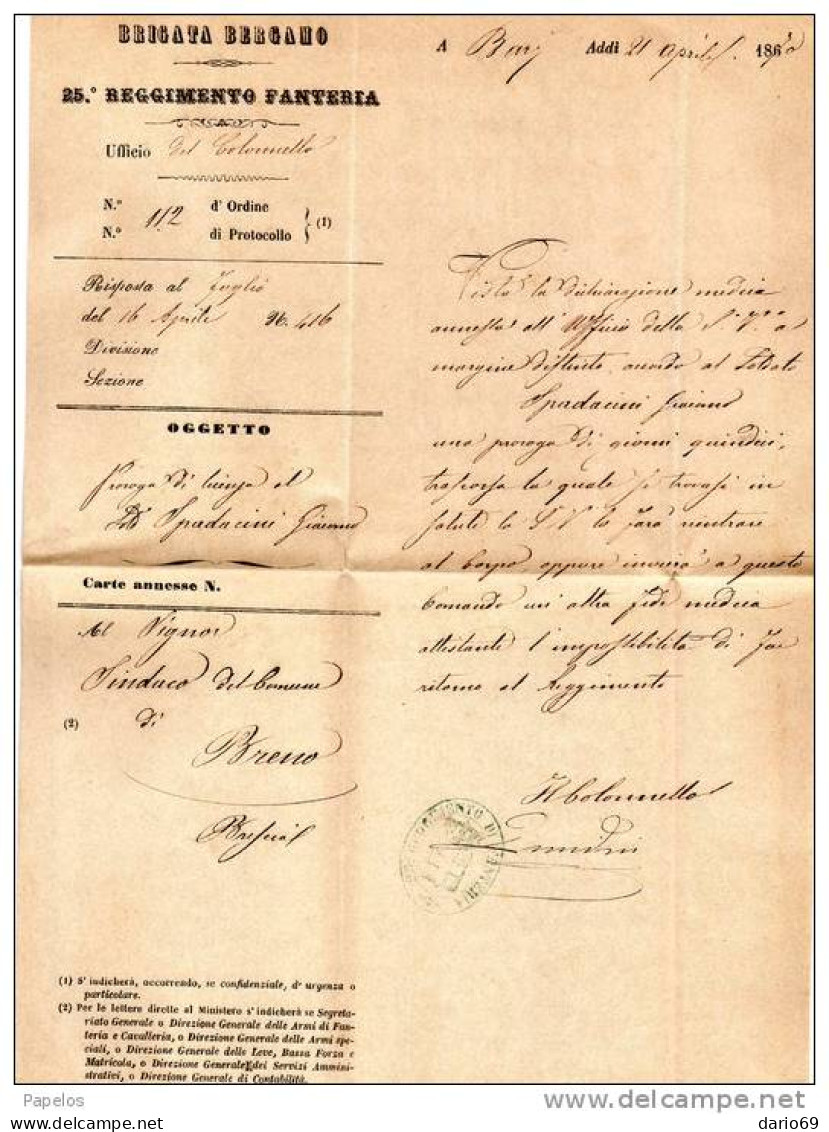 BRIGATA BERGAMO
25.° REGGIMENTO FANTERIA
Ufficio del Colonnello
N.° d' Ordine
N.° 112 di Protocollo (1)
Risposta al foglio
del 16 Aprile N. 416
Divisione
Sezione
OGGETTO
Proroga di licenza al
Sold° Spadacini Giacomo
Carte annesse N.
Al Signor
Sindaco del Comune
(2) di
Breno
Brescia
A Bari Addì 21 aprile 1870
Vista la dichiarazione medica
annessa all' Ufficio della S. V.a a
margine distinto, accordo al Soldato
Spadacini Giacomo
una proroga di giorni quindici,
trascorsa la quale se trovasi in
salute la S.V. lo farà rientrare
al Corpo oppure invierà a questo
Comando un' altra fede medica
attestante l'impossibilità di far
ritorno al Reggimento
Il Colonnello
REGGIMENTO DI FANTERIA
(1) S' indicherà, occorrendo, se confidenziale, d' urgenza o
particolare.
(2) Per le lettere dirette al Ministero s' indicherà se Segreta-
riato Generale o Direzione Generale delle Armi di Fan-
teria e Cavalleria, o Direzione Generale delle Armi spe-
ciali, o Direzione Generale delle Leve, Bassa Forza e
Matricola, o Direzione Generale dei Servizi Ammini-
strativi, o Direzione Generale di Contabilità.
Papelos
delcampe.net
dario69